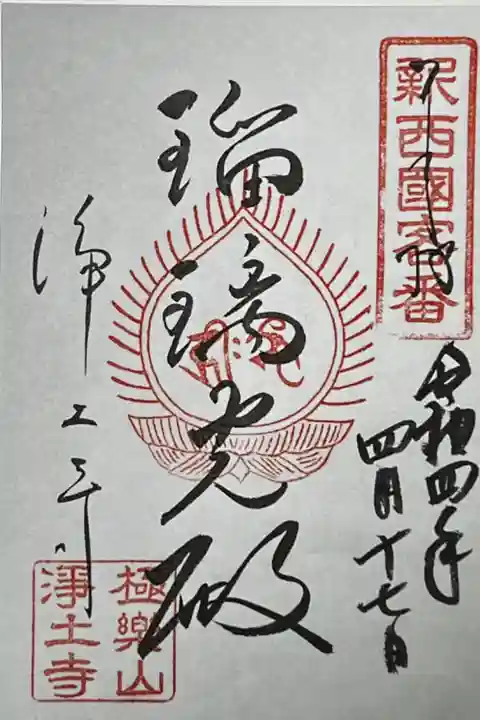 奉拝
新西國客番
令和四年
四月十七日
瑠璃光殿
浄土寺
極樂山
淨土寺